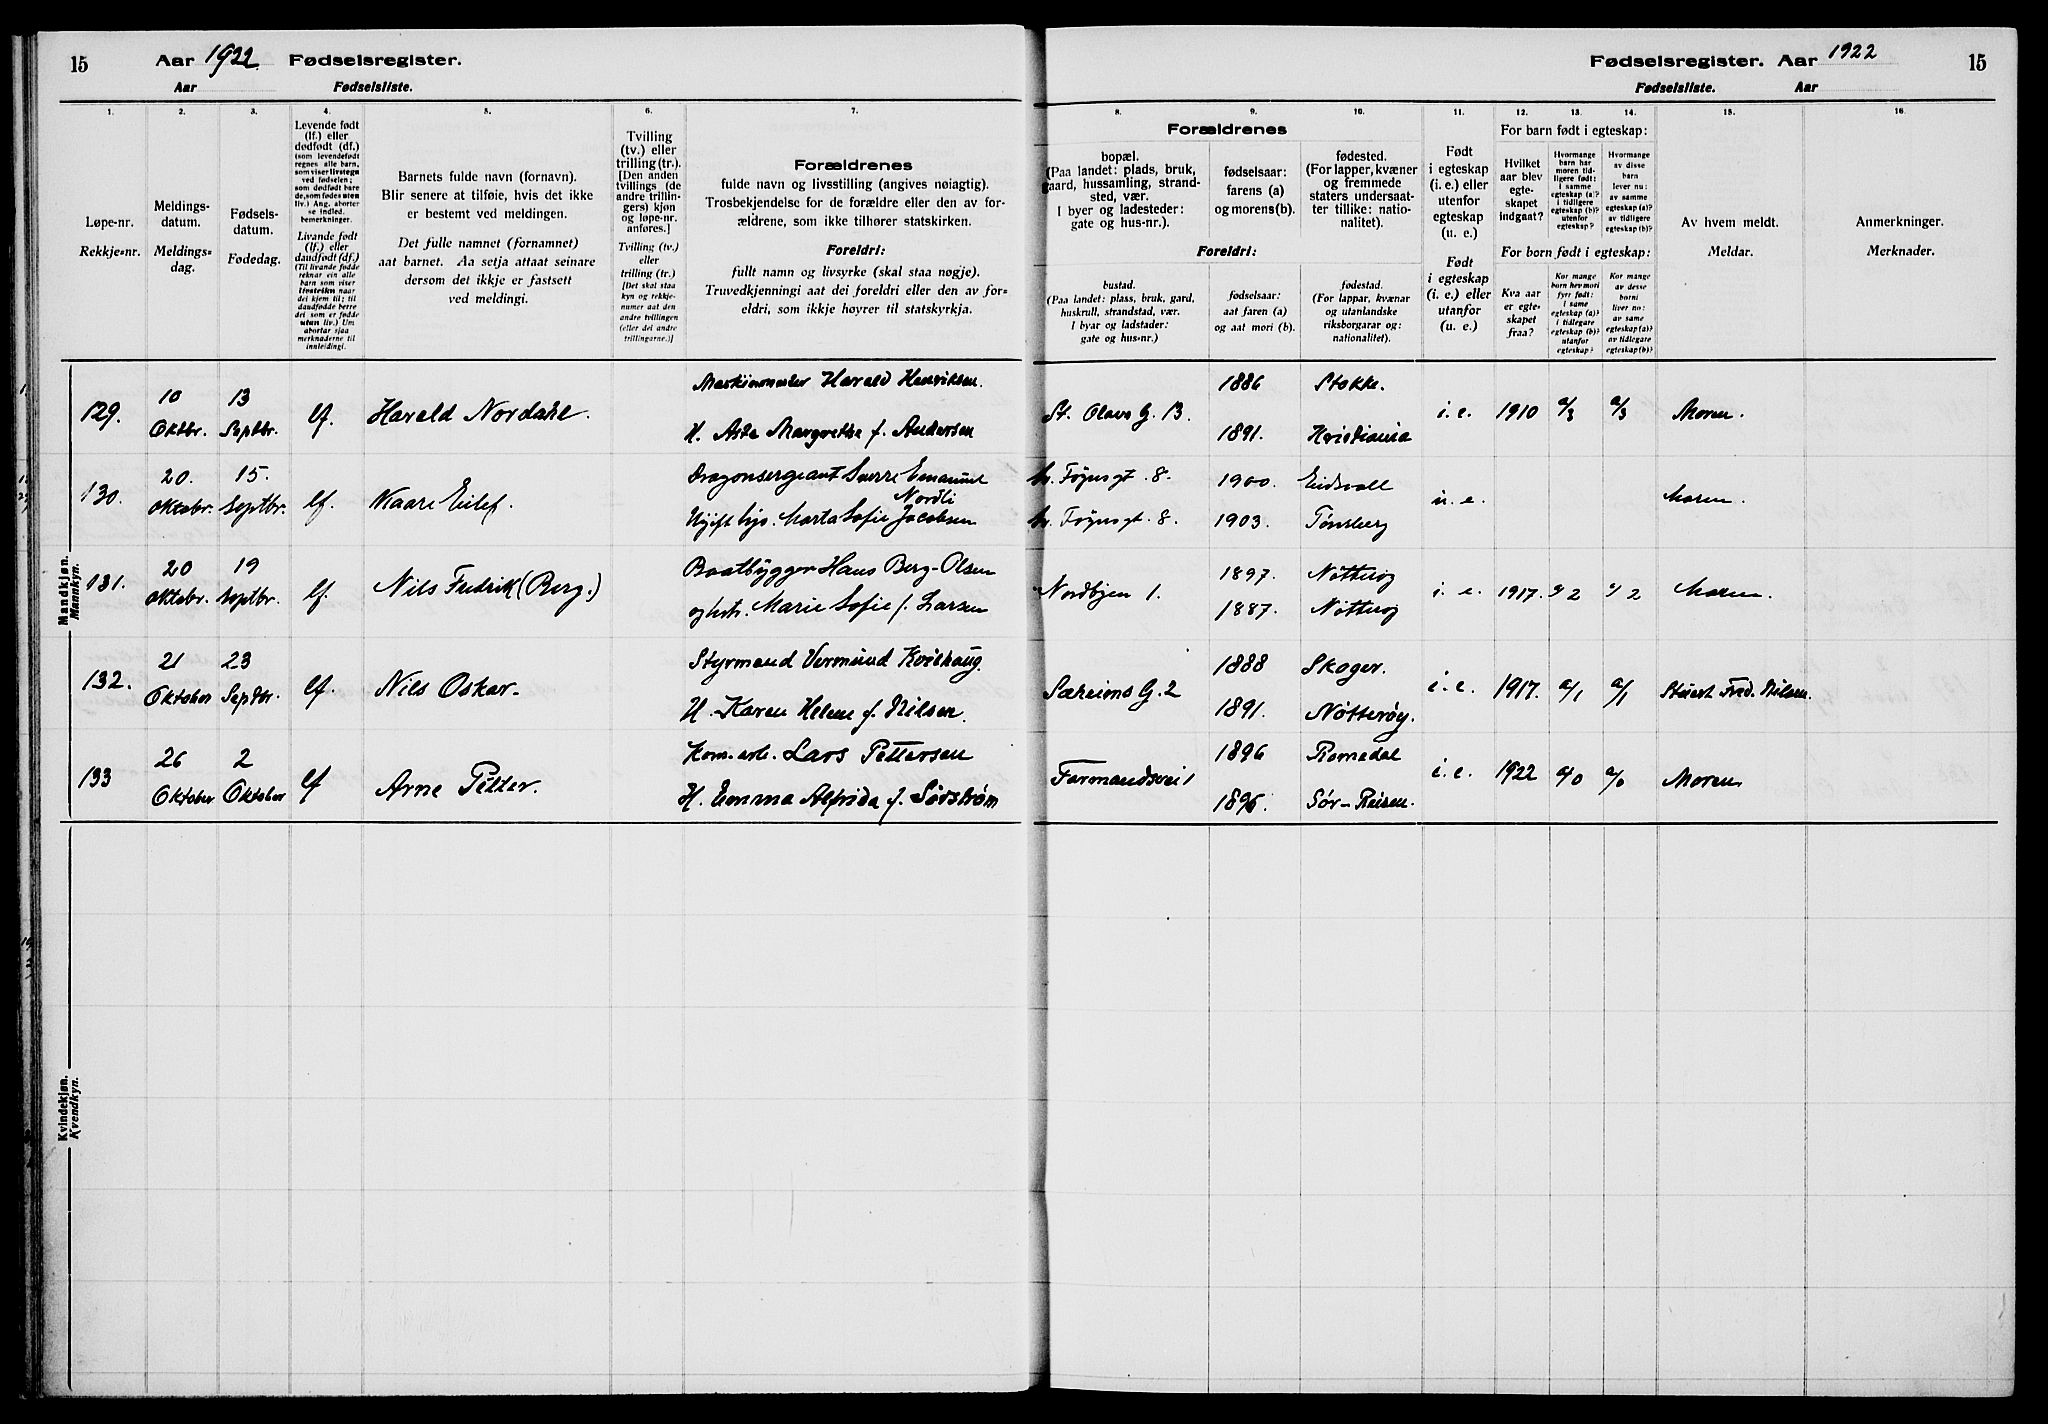 15 Aar 1922 Fødselsregister.
Aar Fødselsliste.
Fødselsregister. Aar 1922 15
Fødselsliste. Aar
1. 2. 3. 4. 5. 6. 7.
Løpe-nr.
Rekkje=nr.
Meldings-
datum.
Meldings=
dag.
Fødsels-
datum.
Fødedag.
Levende født
(lf.) eller
dødfødt (df.)
(som levendefødt
regnes alle barn,
som viser livstegn
ved fødselen;
som dødfødt bare
de, som fødes uten
liv.) Ang. aborter
se indled.
bemerkninger.
Livande født
(lf.) eller
daudfødt (df.)
(Til livande fødde
reknar ein alle
barn som viser
livsteikn naar
dei kjem til; til
daudfødde berre
dei som er fødde
utan liv.) Um
abortar sjaa
merknaderne til
innleidingi.
Barnets fulde navn (fornavn).
Blir senere at tilføie, hvis det ikke
er bestemt ved meldingen.
Det fulle namnet (fornamnet)
aat barnet. Aa setja attaat seinare
dersom det ikkje er fastsett
ved meldingi.
Tvilling
(tv.) eller
trilling (tr.).
[Den anden
tvillings (de
andre trillin-
gers) kjøn
og løpe-nr.
anføres.]
Tvilling (tv.)
eller
trilling (tr.)
[Det skal staa
kyn og rekkje-
numer aat den
andre tvillingen
(eller dei andre
trillingarne.)]
Forældrenes
fulde navn og livsstilling (angives nøiagtig).
Trosbekjendelse for de forældre eller den av for-
ældrene, som ikke tilhører statskirken.
Foreldri:
fullt namn og livsyrke (skal staa nøgje).
Truvedkjenningi aat dei foreldri eller den av for=
eldri, som ikkje høyrer til statskyrkja.
8. 9. 10. 11. 12. 13. 14. 15. 16.
Forældrenes
bopæl.
(Paa landet: plads, bruk,
gaard, hussamling, strand-
sted, vær.
I byer og ladesteder:
gate og hus-nr.).
fødselsaar:
farens (a)
og morens (b).
fødested.
(For lapper, kvæner
og fremmede
staters undersaat-
ter tillike: natio-
nalitet).
Foreldri:
bustad.
(Paa landet: plass, bruk, gard,
huskrull, strandstad, vær.
I byar og ladstader:
gate og hus=nr.)
fødselsaar:
aat faren (a)
og aat mori (b).
fødestad.
(For lappar, kvænar
og utanlandske
riksborgarar og:
nationalitet).
Født
i egteskap
(i. e.) eller
utenfor
egteskap
(u. e.)
Født
i egteskap
(i. e.) eller
utanfor
(u. e.)
For barn født i egteskap:
Hvilket
aar blev
egte-
skapet
indgaat?
Hvormange
barn har
moren tid-
ligere født:
i samme
egteskap (a)?
i tidligere
egteskap (b)?
utenfor
egteskap?
Hvormange
av disse
barn
lever nu:
av samme
egteskap (a)?
av tidligere
egteskap (b)?
For born født i egteskap:
Kva aar
er egte-
skapet
fraa?
Kor mange
born hev mori
fyrr født:
i same
egteskap (a)?
i tidlegare
egteskap (b)?
utanfor
egteskap?
Kor mange
av desse
borni
liver no:
av same
egteskap (a)?
av tidlegare
egteskap (b)?
Av hvem meldt.
Meldar.
Anmerkninger.
Merknader.
Mandkjøn.
Mannkyn.
129. 10 Oktbr. 13 Septbr. lf. Harald Nordahl. Maskinmester Harald Henriksen.
H. Asta Margrethe f. Andersen
St. Olavs G. 13 1886 Stokke. 1891. Kristiania i. e. 1910 a/3 a/3 Moren.
130. 20. Oktobr. 15. Septbr. lf. Kaare Eilef. Dragonsergeant Sverre Emanuel
Nordli
Ugift hjs. Marta Sofie Jacobsen
Føynsgt. 8. 1900. Eidsvoll
Føynsgt. 8. 1903. Tønsberg u. e. Moren.
131. 20 Oktobr. 19 Septbr. lf. Nils Fredrik (Berg.) Baatbygger Hans Berg-Olsen
og hstr. Marie Sofie f. Larsen
Nordbyen 1. 1897. Nøtterøy 1887. Nøtterøy i. e. 1917. a/2 a/2 Moren.
132. 21 Oktober 23 Septbr. lf. Nils Oskar. Styrmand Vermund Kvilhaug.
H. Karen Helene f. Nilsen.
Sæheims G. 2 1888 Skoger. 1891. Nøtterøy. i. e. 1917. a/1 a/1 Stuert Fred. Nilsen.
133 26 Oktober 2 Oktober lf Arne Petter. Kom. arb. Lars Pettersen
H. Emma Alfrida f. Sørstrøm
Farmandsvei 1 1896 Romedal 1896. Sør-Reisen. i. e. 1922 a/0 a/0 Moren
Kvindekjøn.
Kvendkyn.